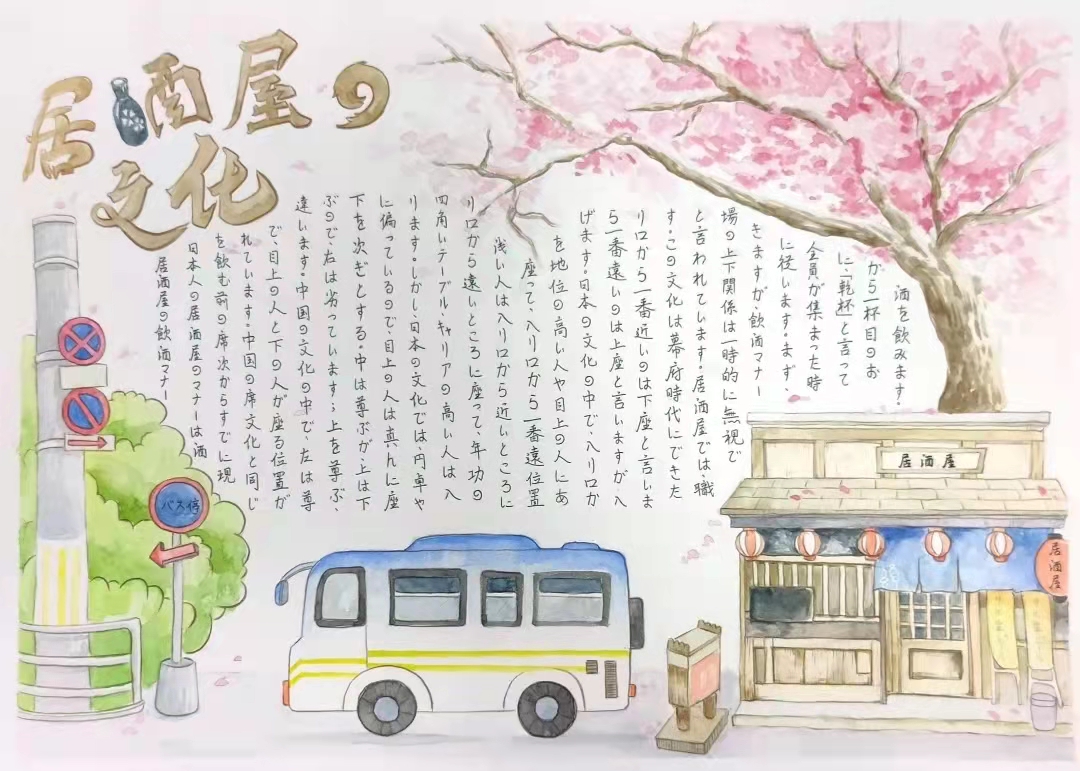 居酒屋の
文化
居酒屋の飲酒マナー
日本人の居酒屋のマナーは酒
を飲む前の席次からすでに現
れています。中国の席文化と同じ
で、目上の人と下の人が座る位置が
違います。中国の文化の中で、左は尊
ぶので、右は劣っています；上を尊ぶ、
下を次ぎとする。中は尊ぶが、上は下
に偏っているので目上の人は真、んに座
ります。しかし、日本の文化では、円卓や
四角いテーブル、キャリアの高い人は入
り口から遠いところに座って、年功の
浅い人は入り口から近いところに
座って、入り口から一番遠位置
を地位の高い人や目上の人にあ
げます。日本の文化の中で、入り口か
ら一番遠いのは上座と言いますが、入
り口から一番近いのは下座と言いま
す。この文化は幕府時代にできた
と言われています。居酒屋では、職
場の上下関係は一時的に無視で
きますが飲酒マナー
に従います。まず、
全員が集まった時
に、「乾杯」と言って
から一杯目のお
酒を飲みます。
バス停
居酒屋
居酒屋